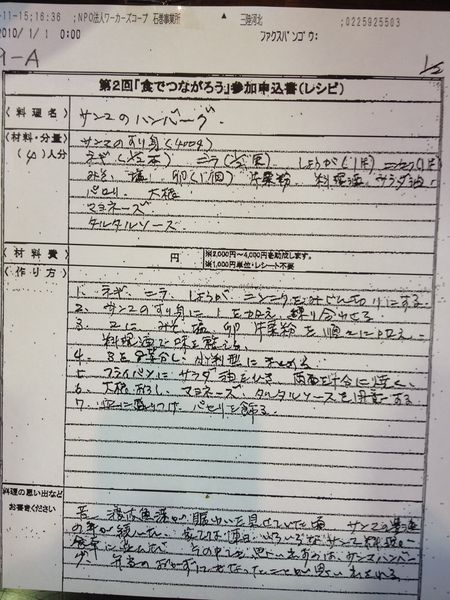 -11-15;16:36 ;NPO法人ワーカーズコープ 石巻事業所 三陸河北 ;0225925503
2010/ 1/ 1 0:00 ファクスバンゴウ:
9-A 1/2
第2回「食でつながろう」参加申込書(レシピ)
(料理名) サンマのハンバーグ
(材料・分量) サンマのすり身(400g)
(4)人分 ネギ(1/2本) ニラ(1/2束) しょうが(1片) ニンニク(1片)
みそ、塩、卵(1個) 片栗粉、料理酒、サラダ油、
パセリ 大根
マヨネーズ
タルタルソース
(材料費) 円 ※2,000円～4,000円を助成します。
※1,000円単位・レシート不要
(作り方)
1、ネギ、ニラ、しょうが、ニンニクをみじん切りにする。
2、サンマのすり身に1を加え、練り合わせる
3、2に、みそ、塩、卵、片栗粉を順に加え、
料理酒で味を整える。
4、3を8等分し、小判型にまとめる
5、フライパンにサラダ油をひき、両面を計合に焼く、
6、大根おろし、マヨネーズ、タルタルソースを用意する
7、皿に盛りつけ、パセリを飾る。
料理の思い出など
お書きください
昔、遠洋漁業が賑わいを見せていた頃 サンマの豊漁
の年が続いた。我が家では毎日、いろいろなサンマ料理が
食卓に並んだ。その中でも思い出すのは、サンマハンバー
グ、弁当のおかずに